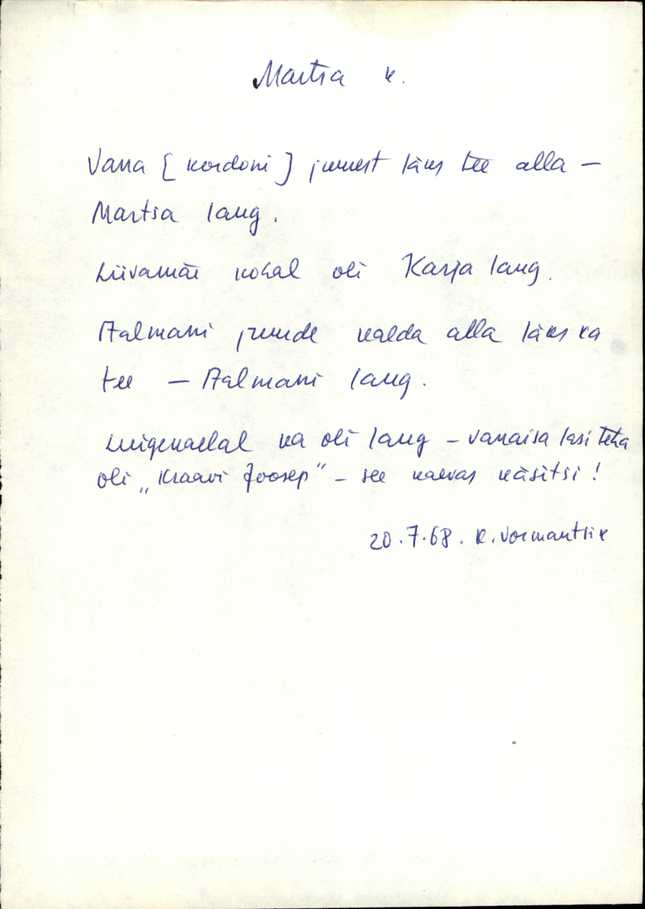 Martsa k.
Vana [kordoni] juurest läks tee alla –
Martsa lang.
Liivamäe kohal oli Karja lang.
Aalmani juurde kalda alla läks ka
tee – Aalmani lang.
Luigekaelal ka oli lang – vanaisa lasi teha
oli „Kraavi Joosep” – see kaevas käsitsi!
20.7.68. K. Vormantsik